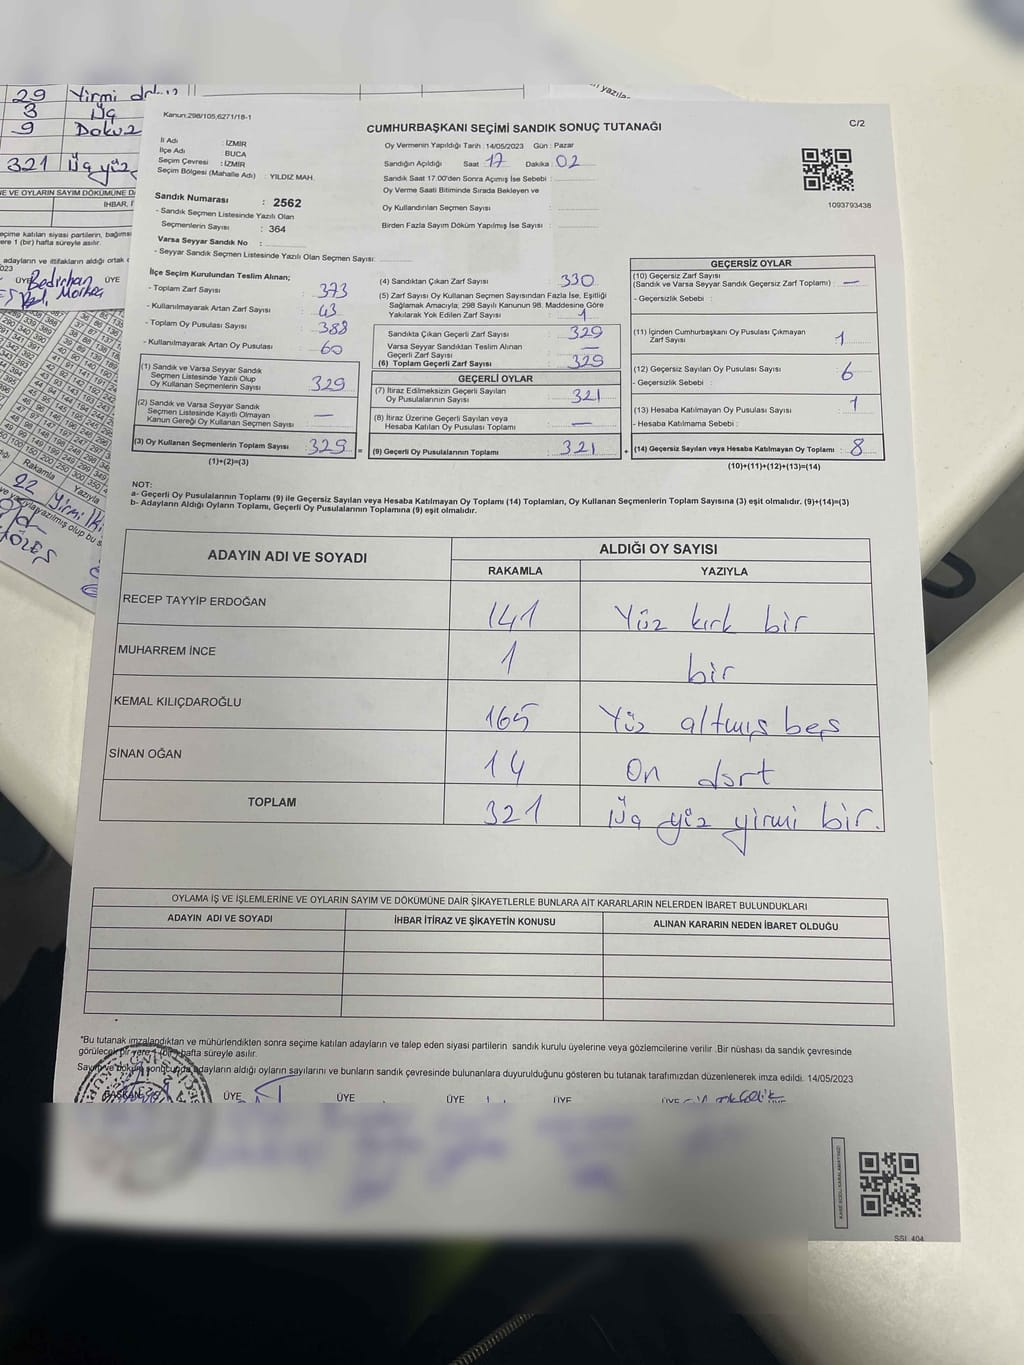 29 Yirmi
3 Üç
9 Dokuz
321 Üç yüz
Kanun:298/105,6271/18-1
C/2
CUMHURBAŞKANI SEÇİMİ SANDIK SONUÇ TUTANAĞI
İl Adı : İZMİR
İlçe Adı BUCA
Seçim Çevresi : İZMİR
Seçim Bölgesi (Mahalle Adı) : YILDIZ MAH.
Oy Vermenin Yapıldığı Tarih :14/05/2023 Gün : Pazar
Sandığın Açıldığı Saat 17 Dakika 02
Sandık Saat 17.00'den Sonra Açımış İse Sebebi :
Oy Verme Saati Bitiminde Sırada Bekleyen ve
Oy Kullandırılan Seçmen Sayısı :
Birden Fazla Sayım Döküm Yapılmış İse Sayısı :
1093793438
Sandık Numarası : 2562
- Sandık Seçmen Listesinde Yazılı Olan
Seçmenlerin Sayısı : 364
Varsa Seyyar Sandık No :
- Seyyar Sandık Seçmen Listesinde Yazılı Olan Seçmen Sayısı:
İlçe Seçim Kurulundan Teslim Alınan;
- Toplam Zarf Sayısı : 373
- Kullanılmayarak Artan Zarf Sayısı : 43
- Toplam Oy Pusulası Sayısı : 388
- Kullanılmayarak Artan Oy Pusulası : 60
(1) Sandık ve Varsa Seyyar Sandık
Seçmen Listesinde Yazılı Olup
Oy Kullanan Seçmenlerin Sayısı : 329
(2) Sandık ve Varsa Seyyar Sandık
Seçmen Listesinde Kayıtlı Olmayan
Kanun Gereği Oy Kullanan Seçmen Sayısı : —
(3) Oy Kullanan Seçmenlerin Toplam Sayısı : 329
(1)+(2)=(3)
(4) Sandıktan Çıkan Zarf Sayısı : 330
(5) Zarf Sayısı Oy Kullanan Seçmen Sayısından Fazla İse, Eşitliği
Sağlamak Amacıyla; 298 Sayılı Kanunun 98. Maddesine Göre
Yakılarak Yok Edilen Zarf Sayısı : 1
Sandıkta Çıkan Geçerli Zarf Sayısı : 329
Varsa Seyyar Sandıktan Teslim Alınan
Geçerli Zarf Sayısı : —
(6) Toplam Geçerli Zarf Sayısı : 329
GEÇERLİ OYLAR
(7) İtiraz Edilmeksizin Geçerli Sayılan
Oy Pusulalarının Sayısı : 321
(8) İtiraz Üzerine Geçerli Sayılan veya
Hesaba Katılan Oy Pusulası Toplamı : —
(9) Geçerli Oy Pusulalarının Toplamı : 321
GEÇERSİZ OYLAR
(10) Geçersiz Zarf Sayısı
(Sandık ve Varsa Seyyar Sandık Geçersiz Zarf Toplamı) : —
- Geçersizlik Sebebi :
(11) İçinden Cumhurbaşkanı Oy Pusulası Çıkmayan
Zarf Sayısı : 1
(12) Geçersiz Sayılan Oy Pusulası Sayısı : 6
- Geçersizlik Sebebi :
(13) Hesaba Katılmayan Oy Pusulası Sayısı : 1
- Hesaba Katılmama Sebebi :
(14) Geçersiz Sayılan veya Hesaba Katılmayan Oy Toplamı : 8
(10)+(11)+(12)+(13)=(14)
NOT:
a- Geçerli Oy Pusulalarının Toplamı (9) ile Geçersiz Sayılan veya Hesaba Katılmayan Oy Toplamı (14) Toplamları, Oy Kullanan Seçmenlerin Toplam Sayısına (3) eşit olmalıdır. (9)+(14)=(3)
b- Adayların Aldığı Oyların Toplamı, Geçerli Oy Pusulalarının Toplamına (9) eşit olmalıdır.
ADAYIN ADI VE SOYADI
ALDIĞI OY SAYISI
RAKAMLA YAZIYLA
RECEP TAYYİP ERDOĞAN 141 Yüz kırk bir
MUHARREM İNCE 1 bir
KEMAL KILIÇDAROĞLU 165 Yüz altmış beş
SİNAN OĞAN 14 On dört
TOPLAM 321 Üç yüz yirmi bir.
OYLAMA İŞ VE İŞLEMLERİNE VE OYLARIN SAYIM VE DÖKÜMÜNE DAİR ŞİKAYETLERLE BUNLARA AİT KARARLARIN NELERDEN İBARET BULUNDUKLARI
ADAYIN ADI VE SOYADI İHBAR İTİRAZ VE ŞİKAYETİN KONUSU ALINAN KARARIN NEDEN İBARET OLDUĞU
"Bu tutanak imzalandıktan ve mühürlendikten sonra seçime katılan adayların ve talep eden siyasi partilerin sandık kurulu üyelerine veya gözlemcilerine verilir .Bir nüshası da sandık çevresinde
görülecek bir yere 1 (bir) hafta süreyle asılır.
Sayım ve döküm sonucunda adayların aldığı oyların sayılarını ve bunların sandık çevresinde bulunanlara duyurulduğunu gösteren bu tutanak tarafımızdan düzenlenerek imza edildi. 14/05/2023
BAŞKAN ÜYE ÜYE ÜYE ÜYE ÜYE
SSI 404